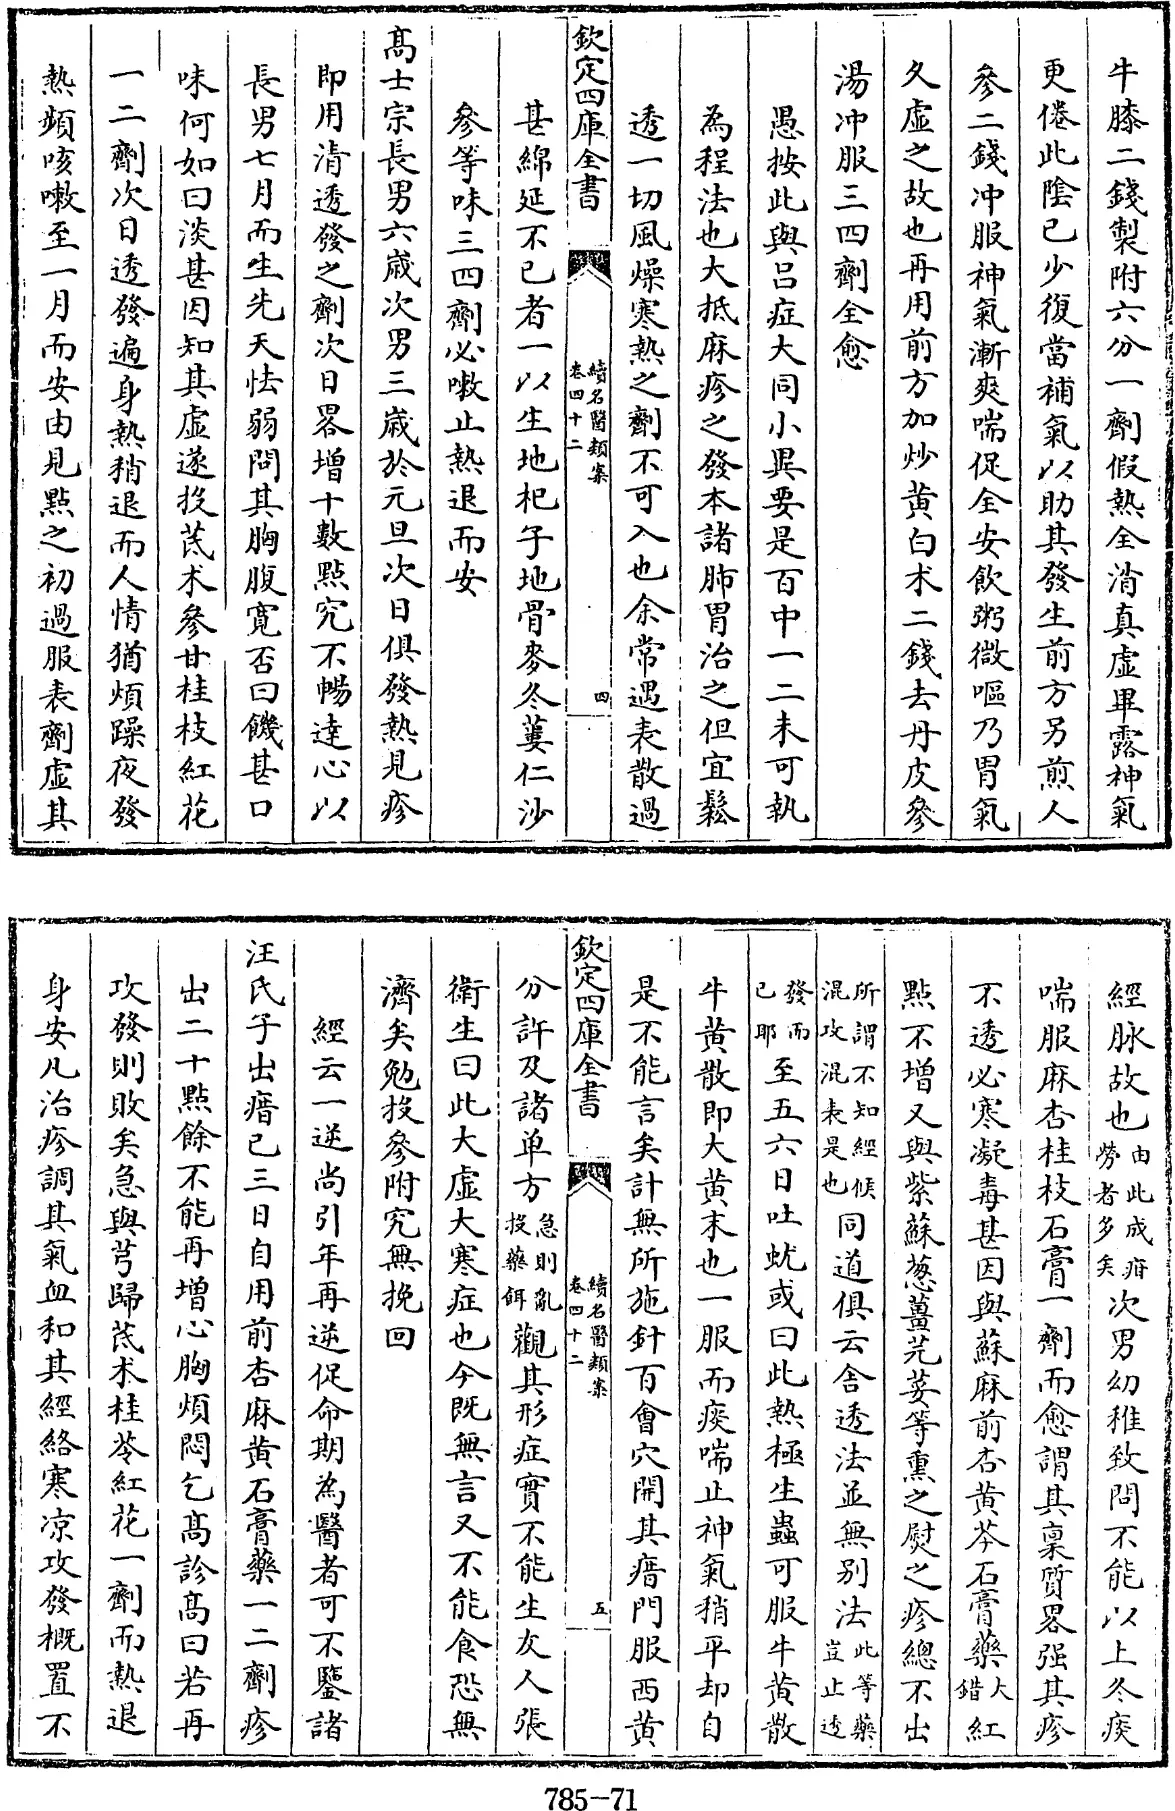 牛膝二錢製附六分一劑假熱全消真虛畢露神氣
更倦此陰已少復當補氣以助其發生前方另煎人
參二錢冲服神氣漸爽喘促全安飲粥微嘔乃胃氣
久虛之故也再用前方加炒黄白朮二錢去丹皮參
湯冲服三四劑全愈
愚按此與呂症大同小異要是百中一二未可執
為程法也大抵麻疹之發本諸肺胃治之但宜鬆
透一切風燥寒熱之劑不可入也余常遇表散過
欽定四庫全書
續名醫類案
卷四十二
四
甚綿延不已者一以生地杞子地骨麥冬蔞仁沙
參等味三四劑必嗽止熱退而安
高士宗長男六歲次男三歲於元旦次日俱發熱見疹
即用清透發之劑次日畧增十數點究不暢達心以
長男七月而生先天怯弱問其胸腹寛否曰饑甚口
味何如曰淡甚因知其虛遂投芪朮參甘桂枝紅花
一二劑次日透發遍身熱稍退而人情猶煩躁夜發
熱頻咳嗽至一月而安由見點之初過服表劑虛其
經脉故也由此成疳勞者多矣次男幼稚致問不能以上冬痰
喘服麻杏桂枝石膏一劑而愈謂其稟質畧强其疹
不透必寒凝毒甚因與蘇麻前杏黄芩石膏藥大錯紅
點不增又與紫蘇葱薑芫荽等熏之熨之疹總不出
所謂不知經候混攻混表是也同道俱云舍透法並無别法此等藥豈止透
發而已耶至五六日吐蚘或曰此熱極生蟲可服牛黄散
牛黄散即大黄末也一服而痰喘止神氣稍平却自
是不能言矣計無所施針百會穴開其瘖門服西黄
欽定四庫全書
續名醫類案
卷四十二
五
分許及諸单方急則亂投藥餌觀其形症實不能生友人張
衛生曰此大虛大寒症也今既無言又不能食恐無
濟矣勉投參附究無挽回
經云一逆尚引年再逆促命期為醫者可不鑒諸
汪氏子出瘄已三日自用前杏麻黄石膏藥一二劑疹
出二十點餘不能再增心胸煩悶乞高診高曰若再
攻發則敗矣急與芎歸芪朮桂苓紅花一劑而熱退
身安凡治疹調其氣血和其經絡寒凉攻發概置不
785-71